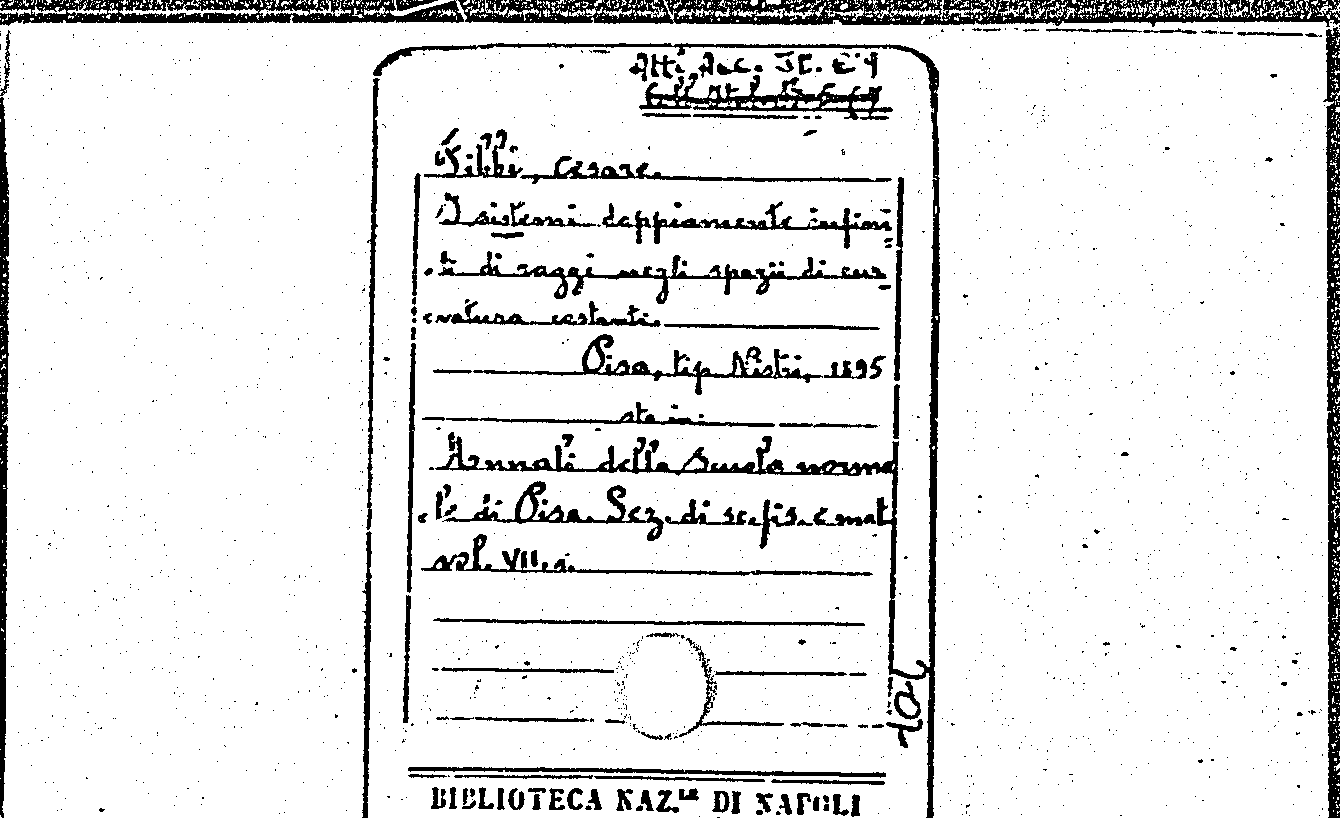 Atti Acc. IC. E 9
Fibbi, Cesare.
I sistemi doppiamente infini-
ti di raggi negli spazii di cur-
vatura costante.
Pisa, tip Nistri, 1895
sta in:
Annali della Scuola norma
le di Pisa. Sez. di sc. fis. e mat
vol. VII.
BIBLIOTECA NAZ.LE DI NAPOLI